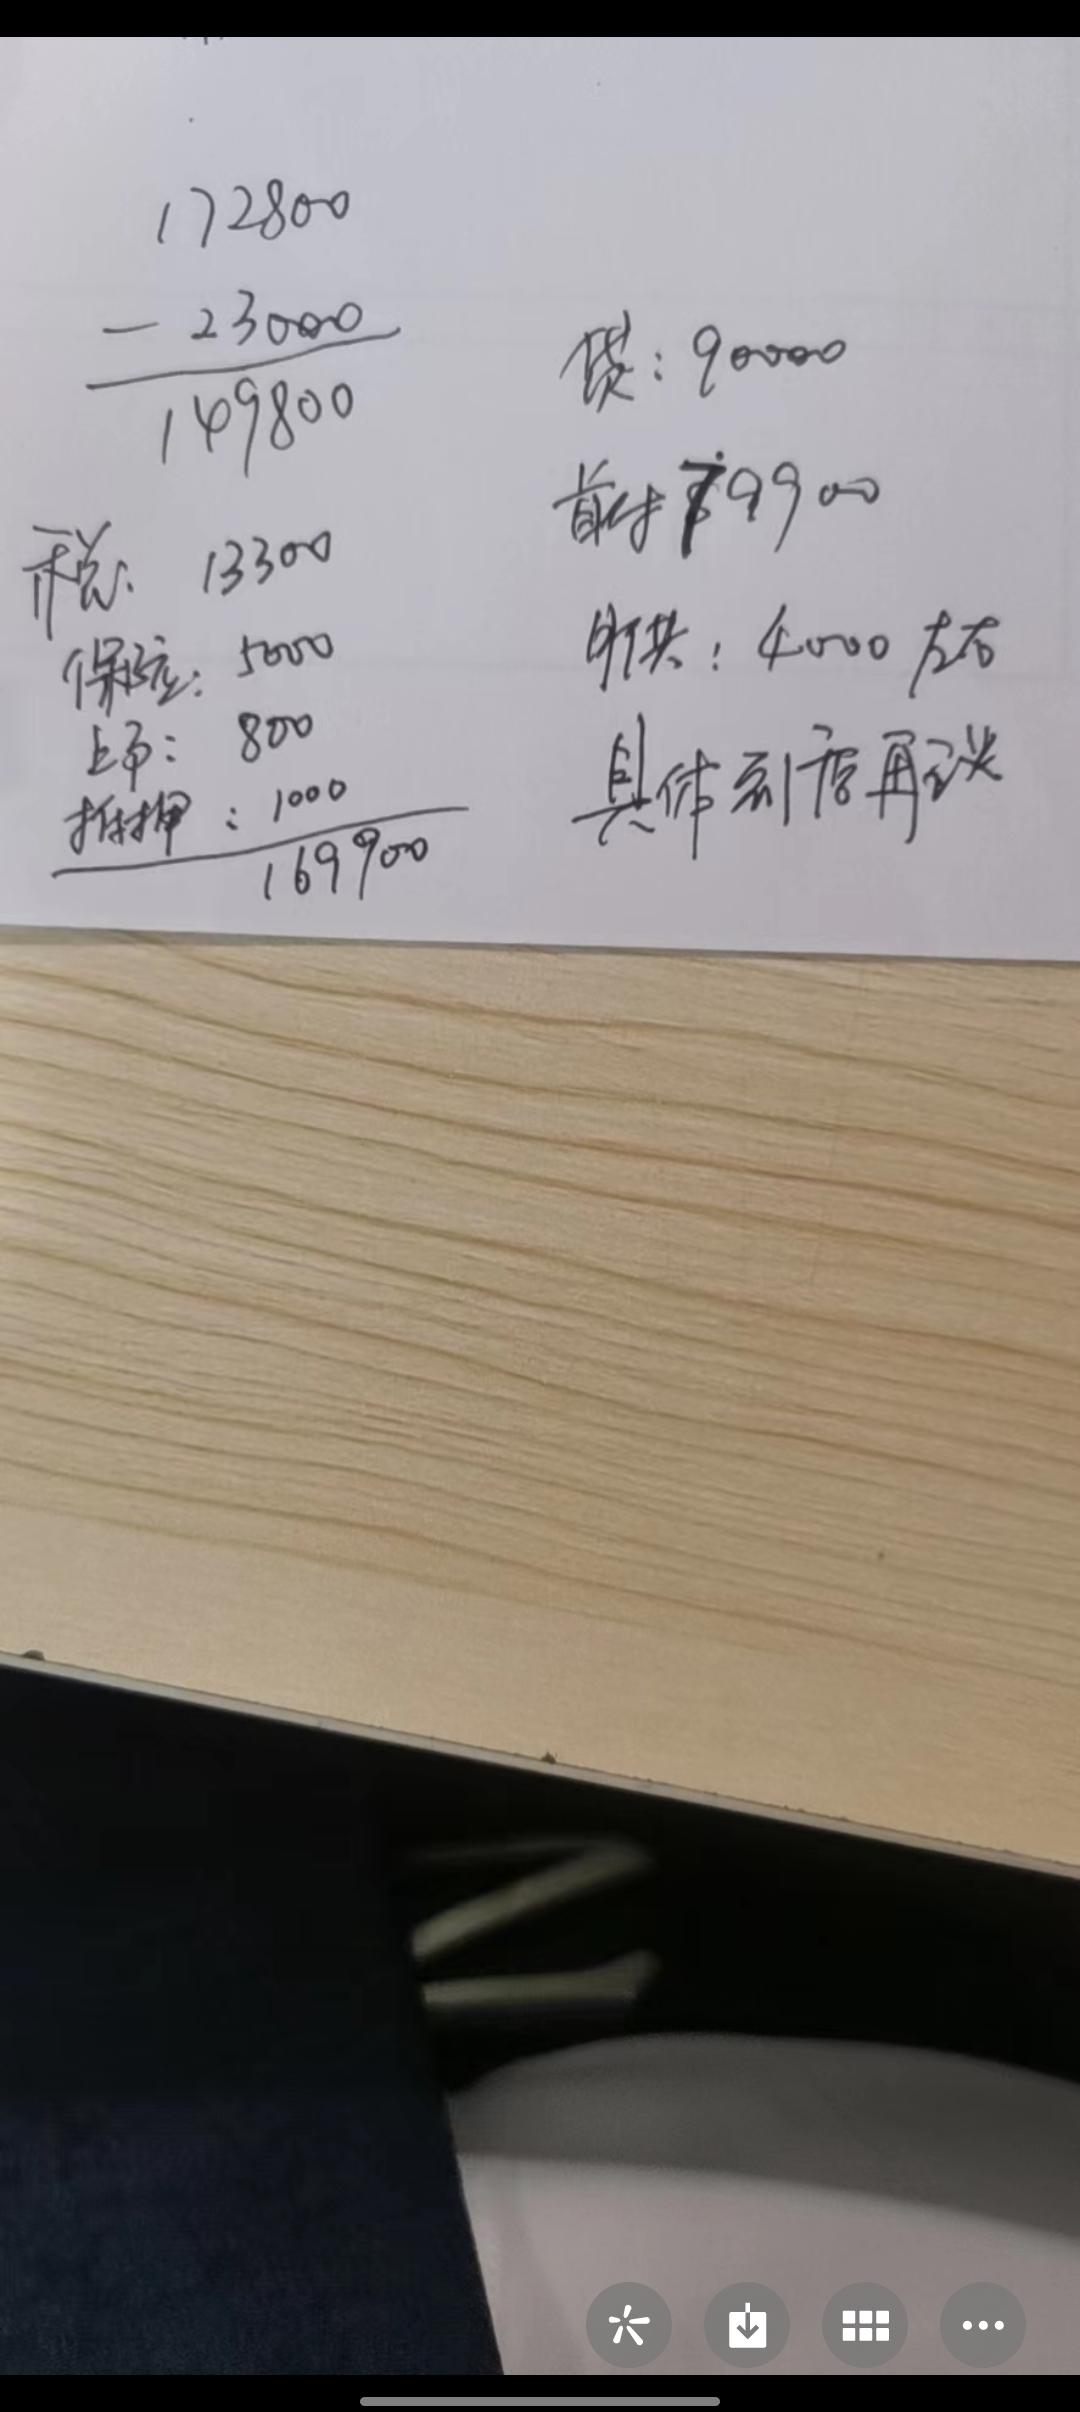 172800
- 23000
149800
税: 13300
保险: 5000
上户: 800
抵押: 1000
169900
贷: 90000
首付 79900
月供: 4000 左右
具体到店再谈